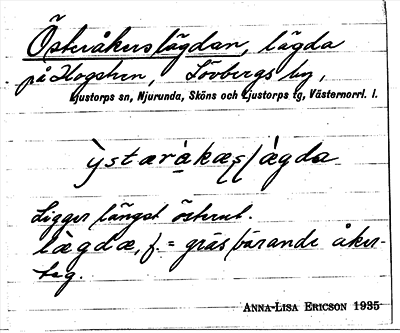 Österåkerslägdan, lägda
på Hogsten, Lövbergs by,
Ljustorps sn, Njurunda, Sköns och Ljustorps tg, Västernorrl. l.
Ligger längst österut.
lægdæ, f. = gräsbärande åker-
teg.
ANNA-LISA ERICSON 1935